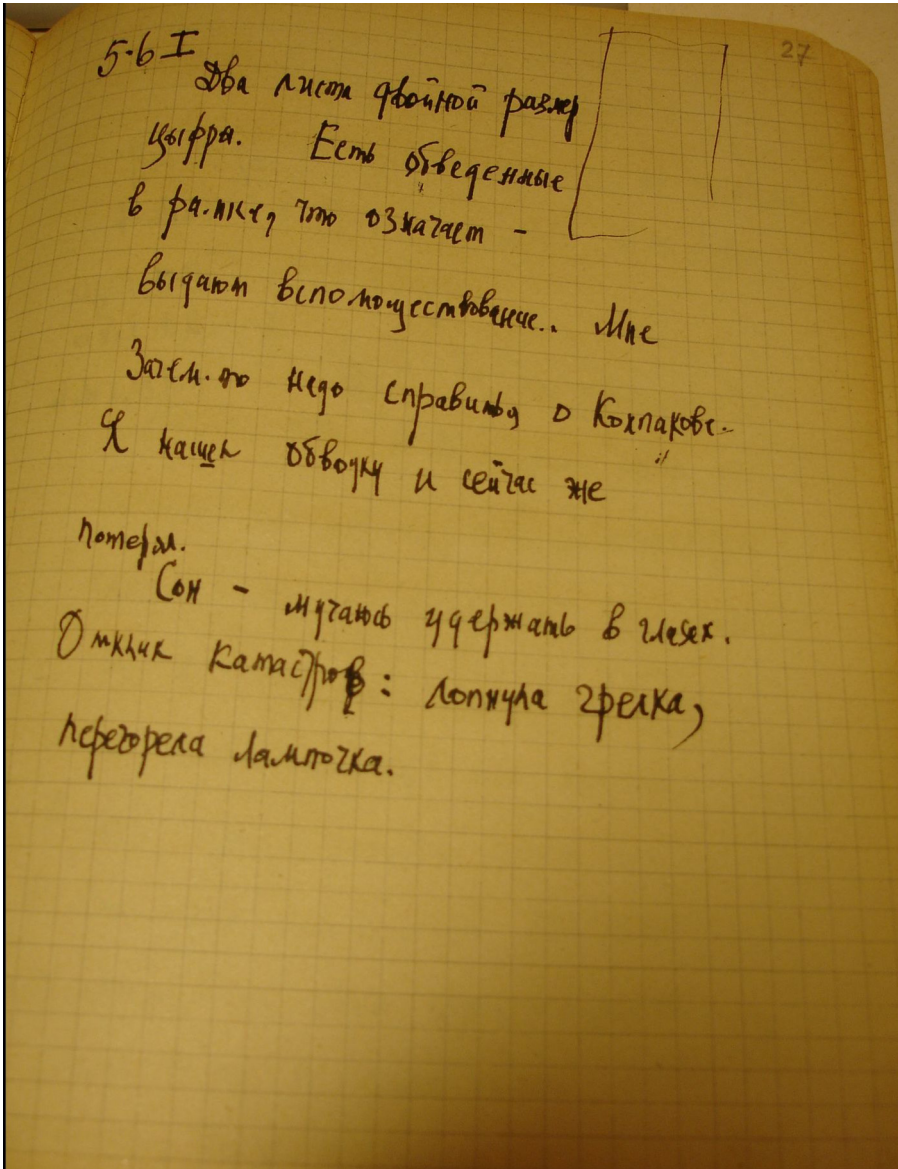 27
5-6 I
Два листа двойной размер
цыфра. Есть обведенные
в рамке, что означает -
выдают вспомоществование.. Мне
Зачем-то надо справиться о Колпакове.
Я нашел обводку и сейчас же
потерял.
Сон - мучаюсь удержать в глазах.
Отклик катастроф: лопнула грелка,
перегорела лампочка.